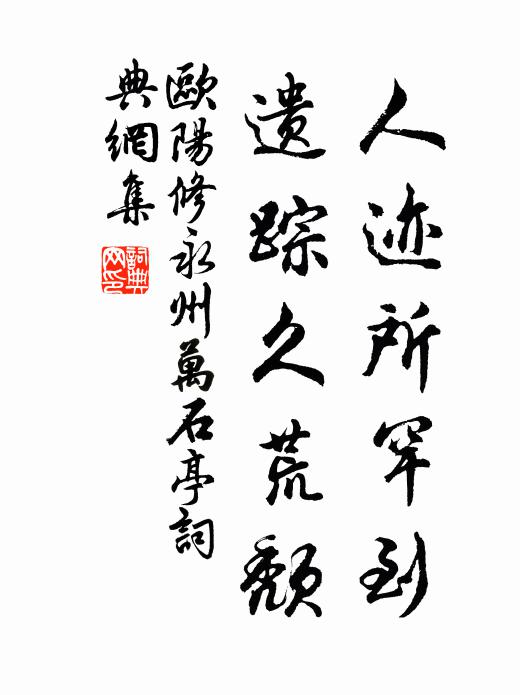 人迹所罕到
遗踪久荒颓
歐陽修永州萬石亭詞
典網集
詞典網印